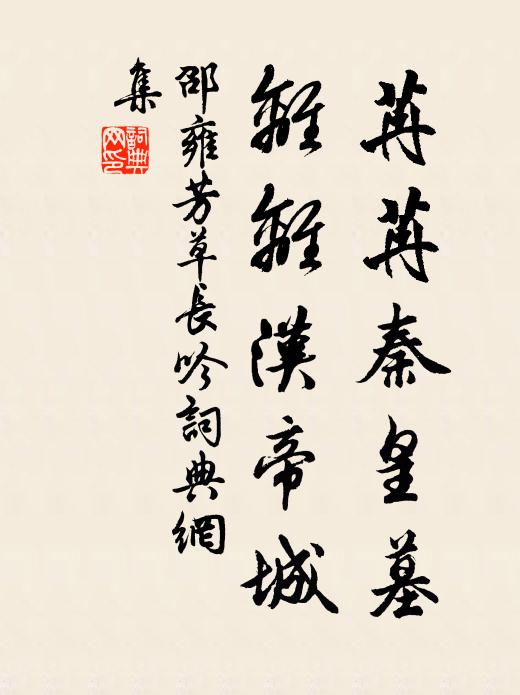 苒苒秦皇墓
離離漢帝城
邵雍芳草長吟詞典網
集
詞典網印